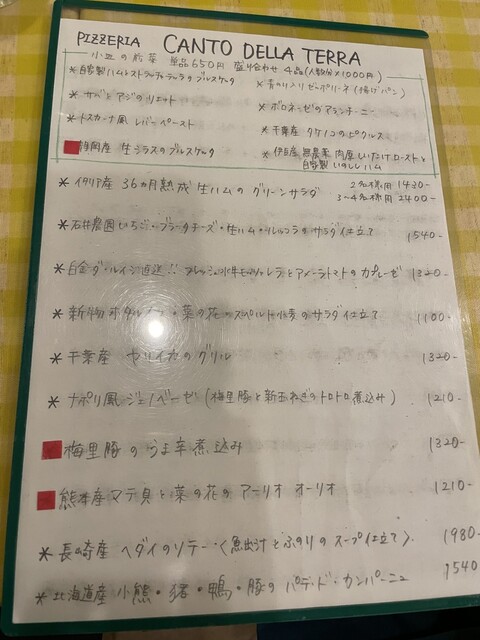 PIZZERIA CANTO DELLA TERRA
小皿の前菜 単品650円 盛り合わせ 4品(人数分×1000円)
*自家製ハムとストラッチャテッラのブルスケッタ
*青のり入りゼッポリーネ(揚げパン)
*サバとアジのリエット
*ボロネーゼのアランチーニ
*トスカーナ風 レバーペースト
*千葉産 タケノコのピクルス
静岡産 生シラスのブルスケッタ
*伊豆産 無農薬 肉厚しいたけローストと
自家製 いのししハム
*イタリア産 36ヵ月熟成 生ハムの グリーンサラダ 2名様用 1430-
3〜4名様用 2400-
*石井農園いちご・ブラータチーズ・生ハム・リコッタのサラダ仕立て 1540-
*白金ダ・ルイジ直送!! フレッシュ水牛モッツァレラとアメーラトマトのカプレーゼ 1320-
*新物ホタルイカ・菜の花のスペルト小麦のサラダ仕立て 1100-
*千葉産 ヤリイカのグリル 1320-
*ナポリ風 ジェノベーゼ(梅里豚と新玉ねぎのトロトロ煮込み) 1210-
梅里豚のうま辛煮込み 1320-
熊本産マテ貝と菜の花のアーリオ オーリオ 1210-
*長崎産 ヘダイのソテー〈魚出汁とふのりのスープ仕立て〉 1980-
*北海道産 小熊・猪・鴨・豚のパテ・ド・カンパーニュ 1540